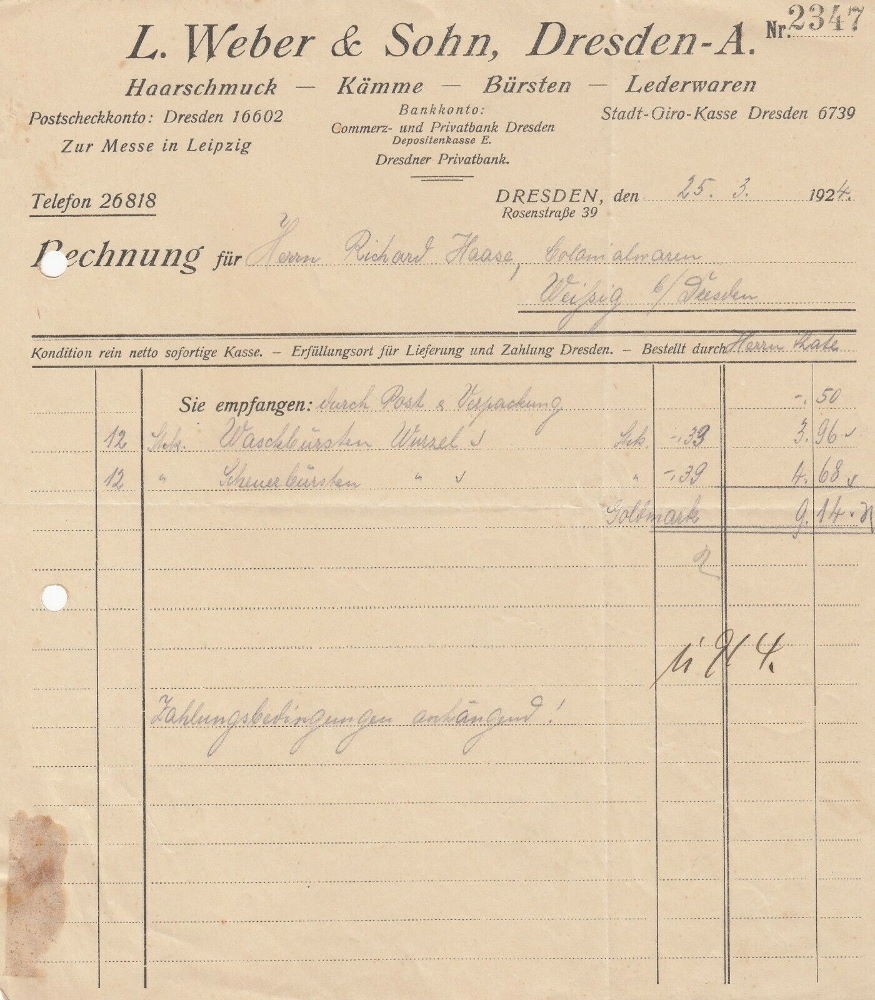 Nr. 2347
L. Weber & Sohn, Dresden-A.
Haarschmuck — Kämme — Bürsten — Lederwaren
Postscheckkonto: Dresden 16602
Zur Messe in Leipzig
Bankkonto:
Commerz- und Privatbank Dresden
Depositenkasse E.
Dresdner Privatbank.
Stadt-Giro-Kasse Dresden 6739
Telefon 26818
DRESDEN, den 25. 3. 1924.
Rosenstraße 39
Rechnung für Herrn Richard Haase, Colonialwaren
Weißig b/ Dresden
Kondition rein netto sofortige Kasse. — Erfüllungsort für Lieferung und Zahlung Dresden. — Bestellt durch Herrn
Sie empfangen: durch Post & Verpackung -. 50
12 Stck. Waschbürsten Wurzel Stck -.33 3.96
12 " Scheuerbürsten " " -.39 4.68
Goldmark 9.14
Zahlungsbedingungen anhängend!